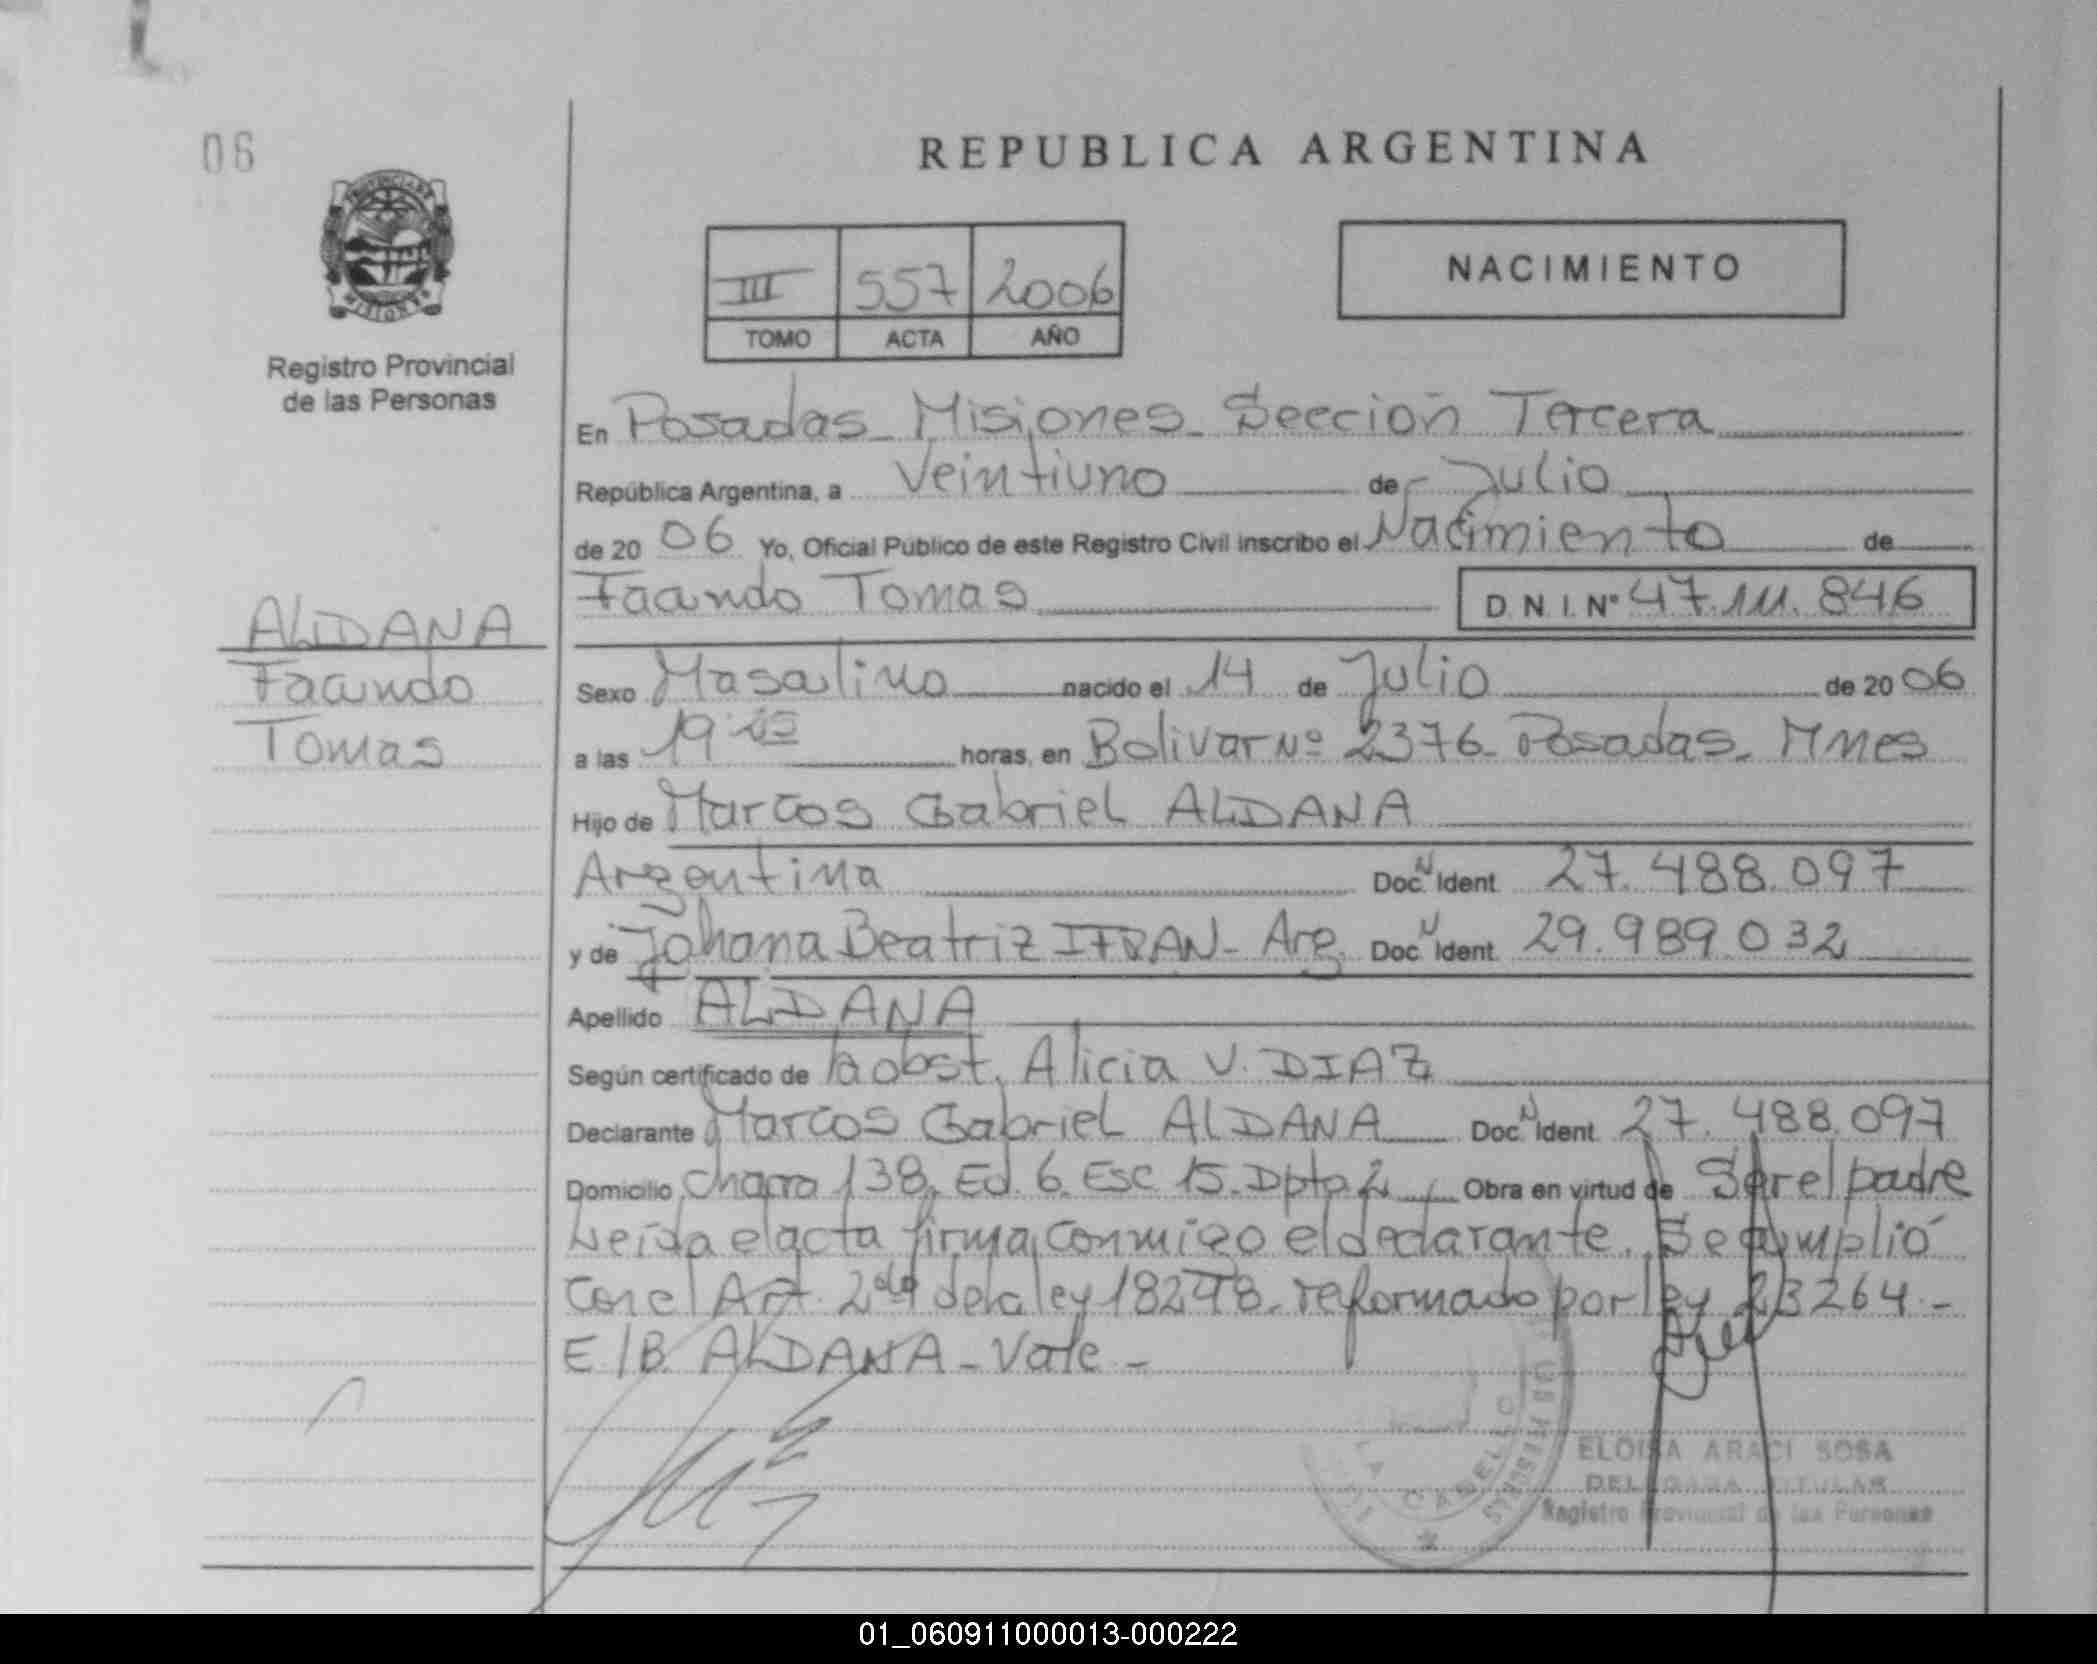 06
REPUBLICA ARGENTINA
NACIMIENTO
III 557 2006
TOMO ACTA AÑO
Registro Provincial
de las Personas
En Posadas Misiones Sección Tercera
República Argentina, a Veintiuno de Julio
de 2006 Yo, Oficial Público de este Registro Civil inscribo el Nacimiento de
Facundo Tomas D.N.I. Nº 47.111.846
ALDANA
Facundo
Tomas
Sexo Masculino nacido el 14 de Julio de 2006
a las 19 horas, en Bolivar Nº 2376 Posadas Mnes
Hijo de Marcos Gabriel ALDANA
Argentina Doc. N Ident. 27.488.097
y de Johana Beatriz IFRAN - Arg. Doc. N Ident. 29.989.032
Apellido ALDANA
Según certificado de la obst. Alicia V. DIAZ
Declarante Marcos Gabriel ALDANA Doc. N Ident. 27.488.097
Domicilio chacra 138. Ed. 6. Esc 15. Dpto 2 Obra en virtud de Ser el padre
Leída el acta firma conmigo el declarante. Se cumplió
con el Art. 2do de la ley 18248. reformado por ley 23264.-
E/B. ALDANA - Vale -
ELOISA ARACI SOSA
DELEGADA TITULAR
Registro Provincial de las Personas
01_060911000013-000222